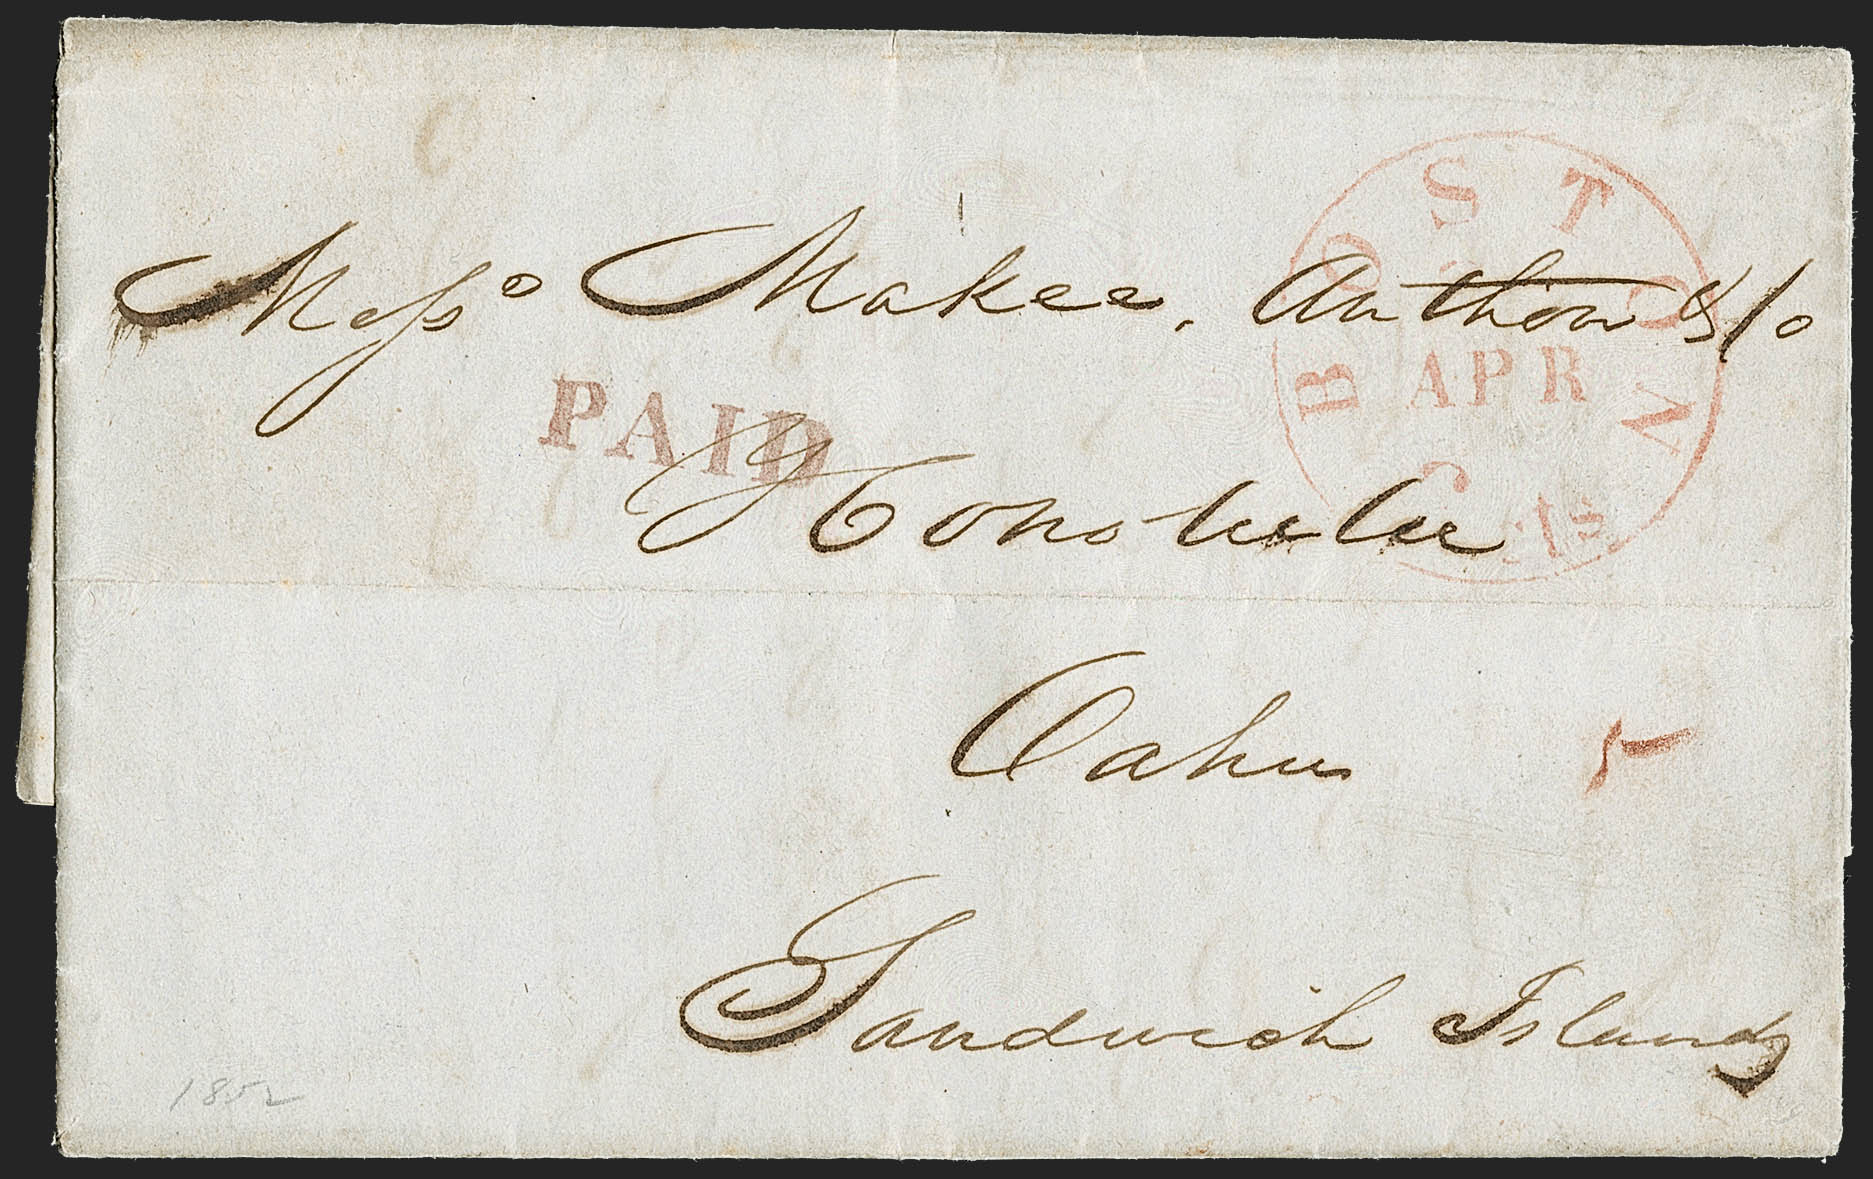 Messrs Makee, Anthon & Co
PAID
BOSTON
APR
Cts
Honolulu
Oahu
5
Sandwich Islands
1852